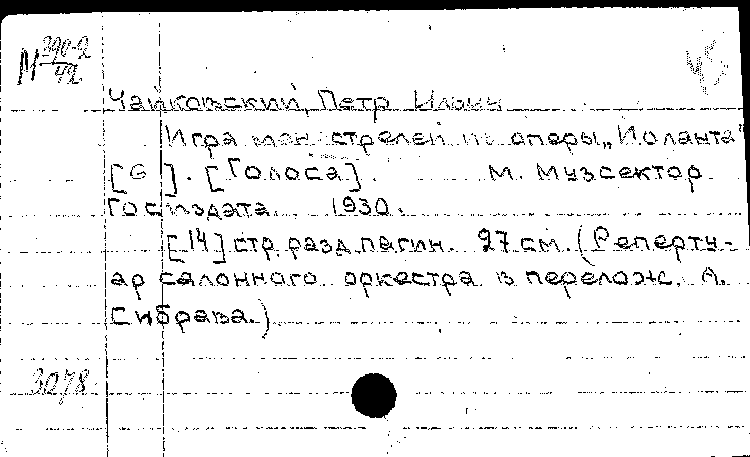 М 390-2
42
45
Чайковский, Петр Ильич
Игра менестрелей из оперы „Иоланта"
[G]. [Голоса]. М. Музсектор
Госиздата. 1930.
[14] стр. разд. пагин. 27 см. (Реперту-
ар салонного оркестра в перелож. А.
Сибрава.)
3078